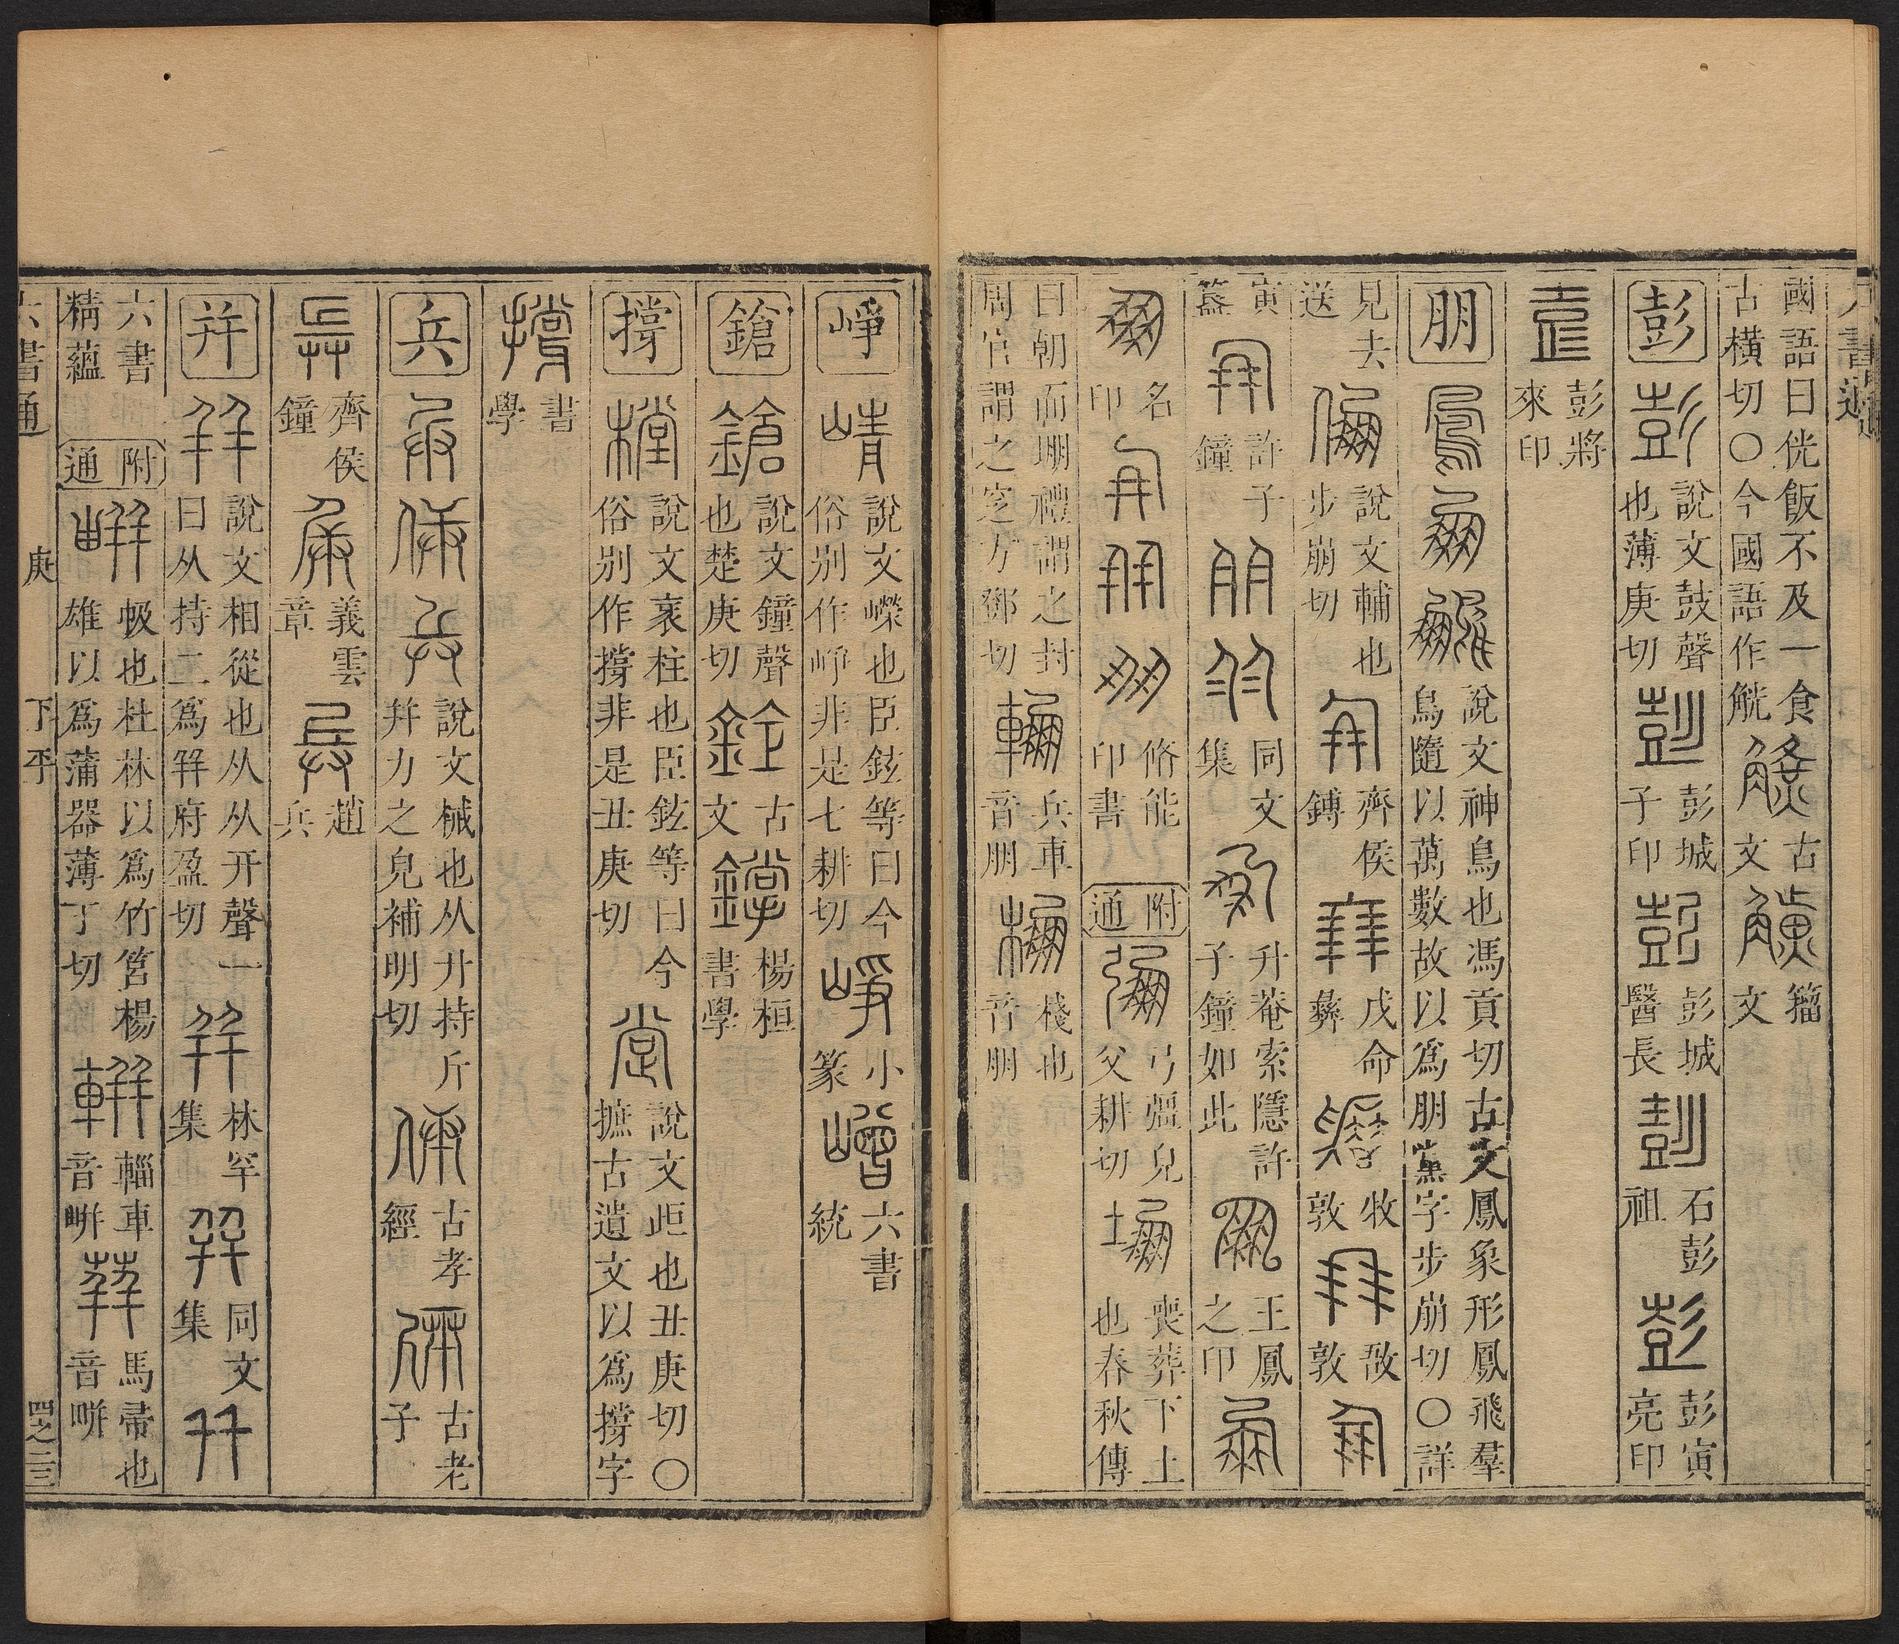 六書通
國語曰侊飯不及一食
古橫切〇今國語作觥
古文
籀文
彭
說文鼓聲也薄庚切
彭城子印
彭城醫長
石彭祖
彭寅亮印
彭將來印
朋
說文神鳥也馮貢切古文鳳象形鳳飛羣
鳥隨以萬數故以爲朋黨字步崩切〇詳
見去送
說文輔也步崩切
齊侯鎛
戊命彝
牧敦
敔敦
寅簋
許子鐘
同文集
升菴索隱許子鐘如此
王鳳之印
名印
脩能印書
附通
弓彊皃父耕切
喪葬下土也春秋傳
曰朝而堋禮謂之封
周官謂之窆方鄧切
兵車音朋
棧也音朋
崢
說文嶸也臣鉉等曰今
俗別作崢非是七耕切
小篆
六書統
鎗
說文鐘聲也楚庚切
古文
楊桓書學
撐
說文衺柱也臣鉉等曰今
俗別作撐非是丑庚切
說文歫也丑庚切〇
摭古遺文以爲撐字
書學
兵
說文械也从廾持斤
并力之皃補明切
古孝經
古老子
齊侯鐘
義雲章
趙兵
并
說文相從也从从幵聲一
曰从持二爲幷府盈切
林罕集
同文集
六書精蘊
附通
䈂也杜林以爲竹筥楊
雄以爲蒲器薄丁切
輜車音𨋏
馬帚也音𠗦
六書通
庚
下平
四之二三